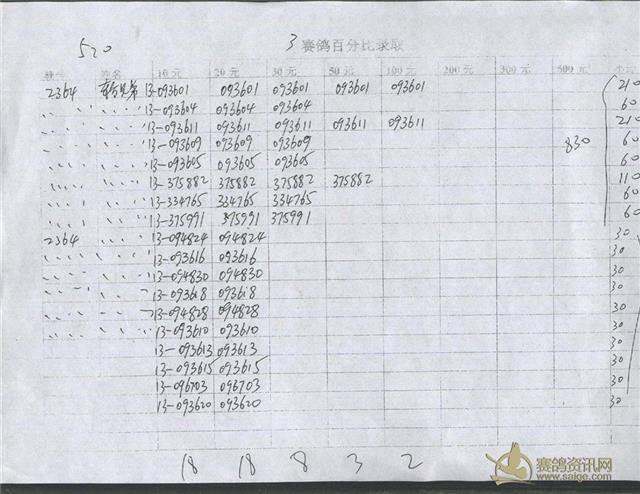 520 3 赛鸽百分比录取
棚号 姓名 10元 20元 30元 50元 100元 200元 300元 500元 小元
2364 兄弟 13-093601 093601 093601 093601 093601 210
〃 〃 13-093604 093604 093604 60
〃 〃 13-093611 093611 093611 093611 093611 210
〃 〃 13-093609 093609 093609 830 60
〃 〃 13-093605 093605 093605 60
〃 〃 13-375882 375882 375882 375882 110
〃 〃 13-334765 334765 334765 60
〃 〃 13-375991 375991 375991 60
2364 〃 13-094824 094824 30
〃 〃 13-093616 093616 30
〃 〃 13-094830 094830 30
〃 〃 13-093618 093618 30
〃 〃 13-094828 094828 30
〃 〃 13-093610 093610 30
13-093613 093613 30
13-093615 093615 30
13-096703 096703 30
13-093620 093620 30
18 18 8 3 2
赛鸽资讯网
www.saige.com